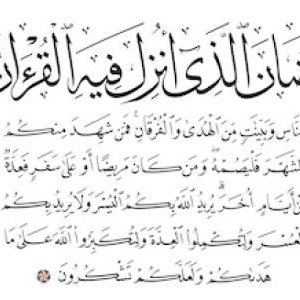 ضان الذى أنزل فيه القرءان
ناس وبينت من الهدى والفرقان فمن شهد منكم
لشهر فليصمه ومن كان مريضا أو على سفر فعدة
من أيام أخر يريد الله بكم اليسر ولا يريد بكم
لعسر ولتكملوا العدة ولتكبروا الله على ما
هدىكم ولعلكم تشكرون